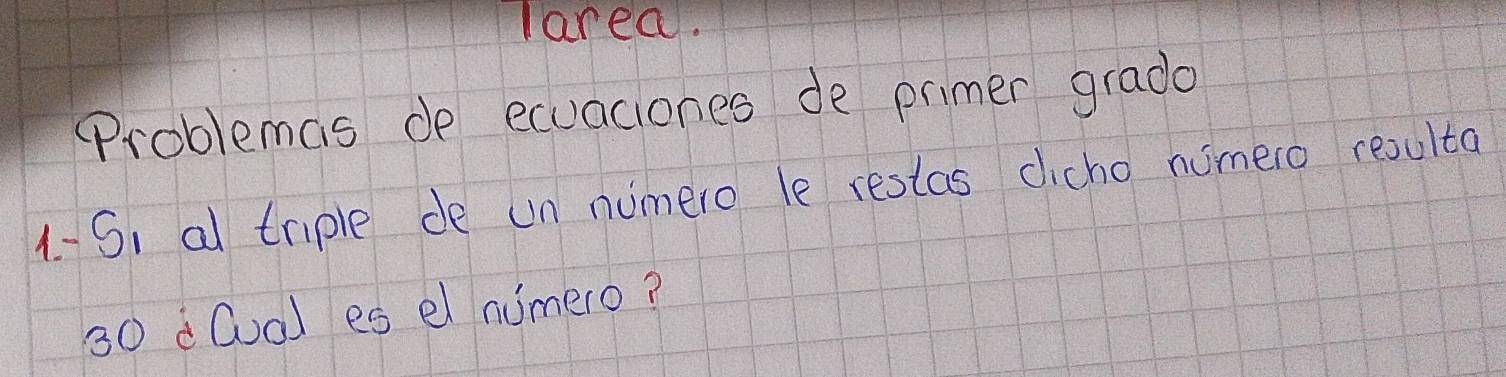 Tarea.
Problemas de ecuaciones de primer grado
1.- Si al triple de un número le restas dicho número resulta
30 ¿Cual es el número?